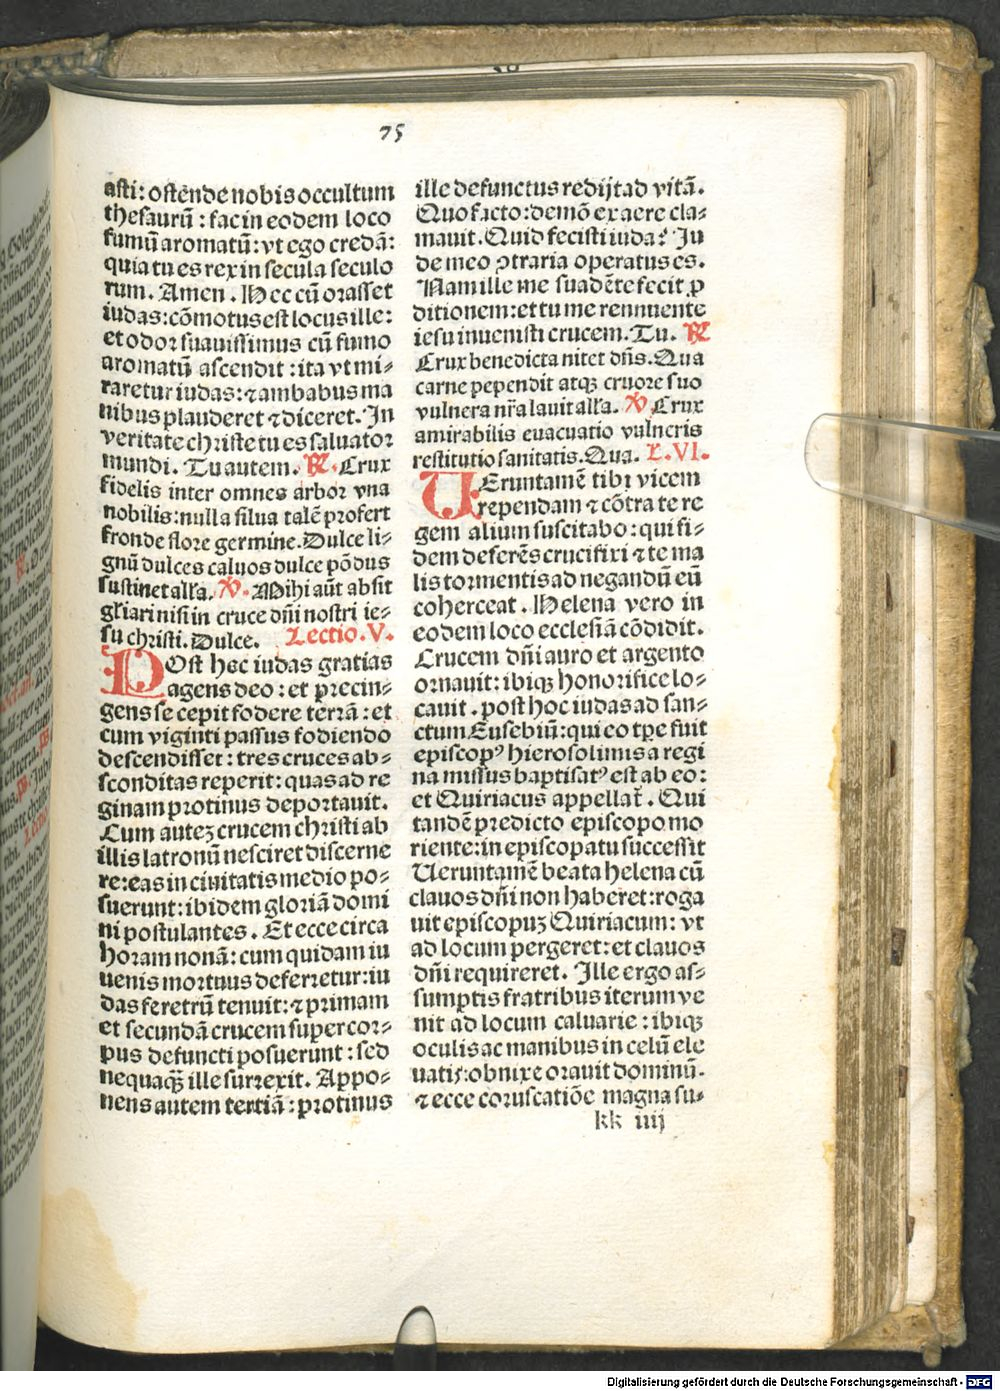 75
asti: ostẽde nobis occultum
thesaurũ : fac in eodem loco
fumũ aromatũ: vt ego credã:
quia tu es rex in secula seculo
rum. Amen. Hec cũ orasset
iudas: cõmotus est locus ille:
et odor suauissimus cũ fumo
aromatũ ascendit : ita vt mi-
raretur iudas: ⁊ ambabus ma
nibus plauderet ⁊ diceret. In
veritate christe tu es saluator
mundi. Tu autem. ℟. Crux
fidelis inter omnes arbor vna
nobilis: nulla silua talẽ profert
fronde flore germine. Dulce li-
gnũ dulces caluos dulce põdus
sustinet alľa. ℣. Mihi aũt absit
gľiari nisi in cruce dñi nostri ie-
su christi. Dulce. Lectio. V.
POst hec iudas gratias
agens deo: et precin-
gens se cepit fodere terrã: et
cum viginti passus fodiendo
descendisset: tres cruces ab-
sconditas reperit: quas ad re
ginam protinus deportauit.
Cum auteꝫ crucem christi ab
illis latronũ nesciret discerne
re: eas in ciuitatis medio po-
suerunt: ibidem gloriã domi
ni postulantes. Et ecce circa
horam nonã: cum quidam iu
uenis mortuus deferretur: iu
das feretrũ tenuit: ⁊ primam
et secundã crucem super cor-
pus defuncti posuerunt : sed
nequaꝙ̃ ille surrexit. Appo-
nens autem tertiã : protinus
ille defunctus redijt ad vitã.
Quo facto: demõ ex aere cla-
mauit. Quid fecisti iuda? Iu
de meo ꝯtraria operatus es.
Nam ille me suadẽte fecit ꝓ
ditionem: et tu me rennuente
iesu inuenisti crucem. Tu. ℟
Crux benedicta nitet dñs. Qua
carne pependit atqꝫ cruore suo
vulnera nr̃a lauit alľa. ℣ Crux
amirabilis euacuatio vulneris
restitutio sanitatis. Qua. L. VI.
UEruntamẽ tibi vicem
rependam ⁊ cõtra te re
gem alium suscitabo: qui fi-
dem deferẽs crucifixi ⁊ te ma
lis tormentis ad negandũ eũ
coherceat. Helena vero in
eodem loco ecclesiã cõdidit.
Crucem dñi auro et argento
ornauit: ibiqꝫ honorifice lo-
cauit. post hoc iudas ad san-
ctum Eusebiũ: qui eo tꝑe fuit
episcopꝰ hierosolimis a regi
na missus baptisatꝰ est ab eo:
et Quiriacus appellat̃. Qui
tandẽ predicto episcopo mo
riente: in episcopatu successit
Ueruntamẽ beata helena cũ
clauos dñi non haberet: roga
uit episcopuꝫ Quiriacum: vt
ad locum pergeret: et clauos
dñi requireret. Ille ergo as-
sumptis fratribus iterum ve
nit ad locum caluarie : ibiqꝫ
oculis ac manibus in celũ ele
uatis: obnixe orauit dominũ.
⁊ ecce coruscatiõe magna su-
kk iiij
Digitalisierung gefördert durch die Deutsche Forschungsgemeinschaft - DFG